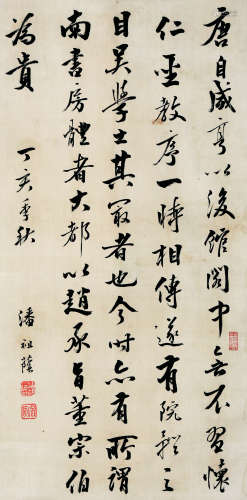 唐自咸亨以後館閣中無不習懷
仁聖教序一時相傳遂有院體之
目吴學士其最者也今时亦有所謂
南書房體者大都以趙承旨董宗伯
為貴
丁亥季秋
潘祖蔭